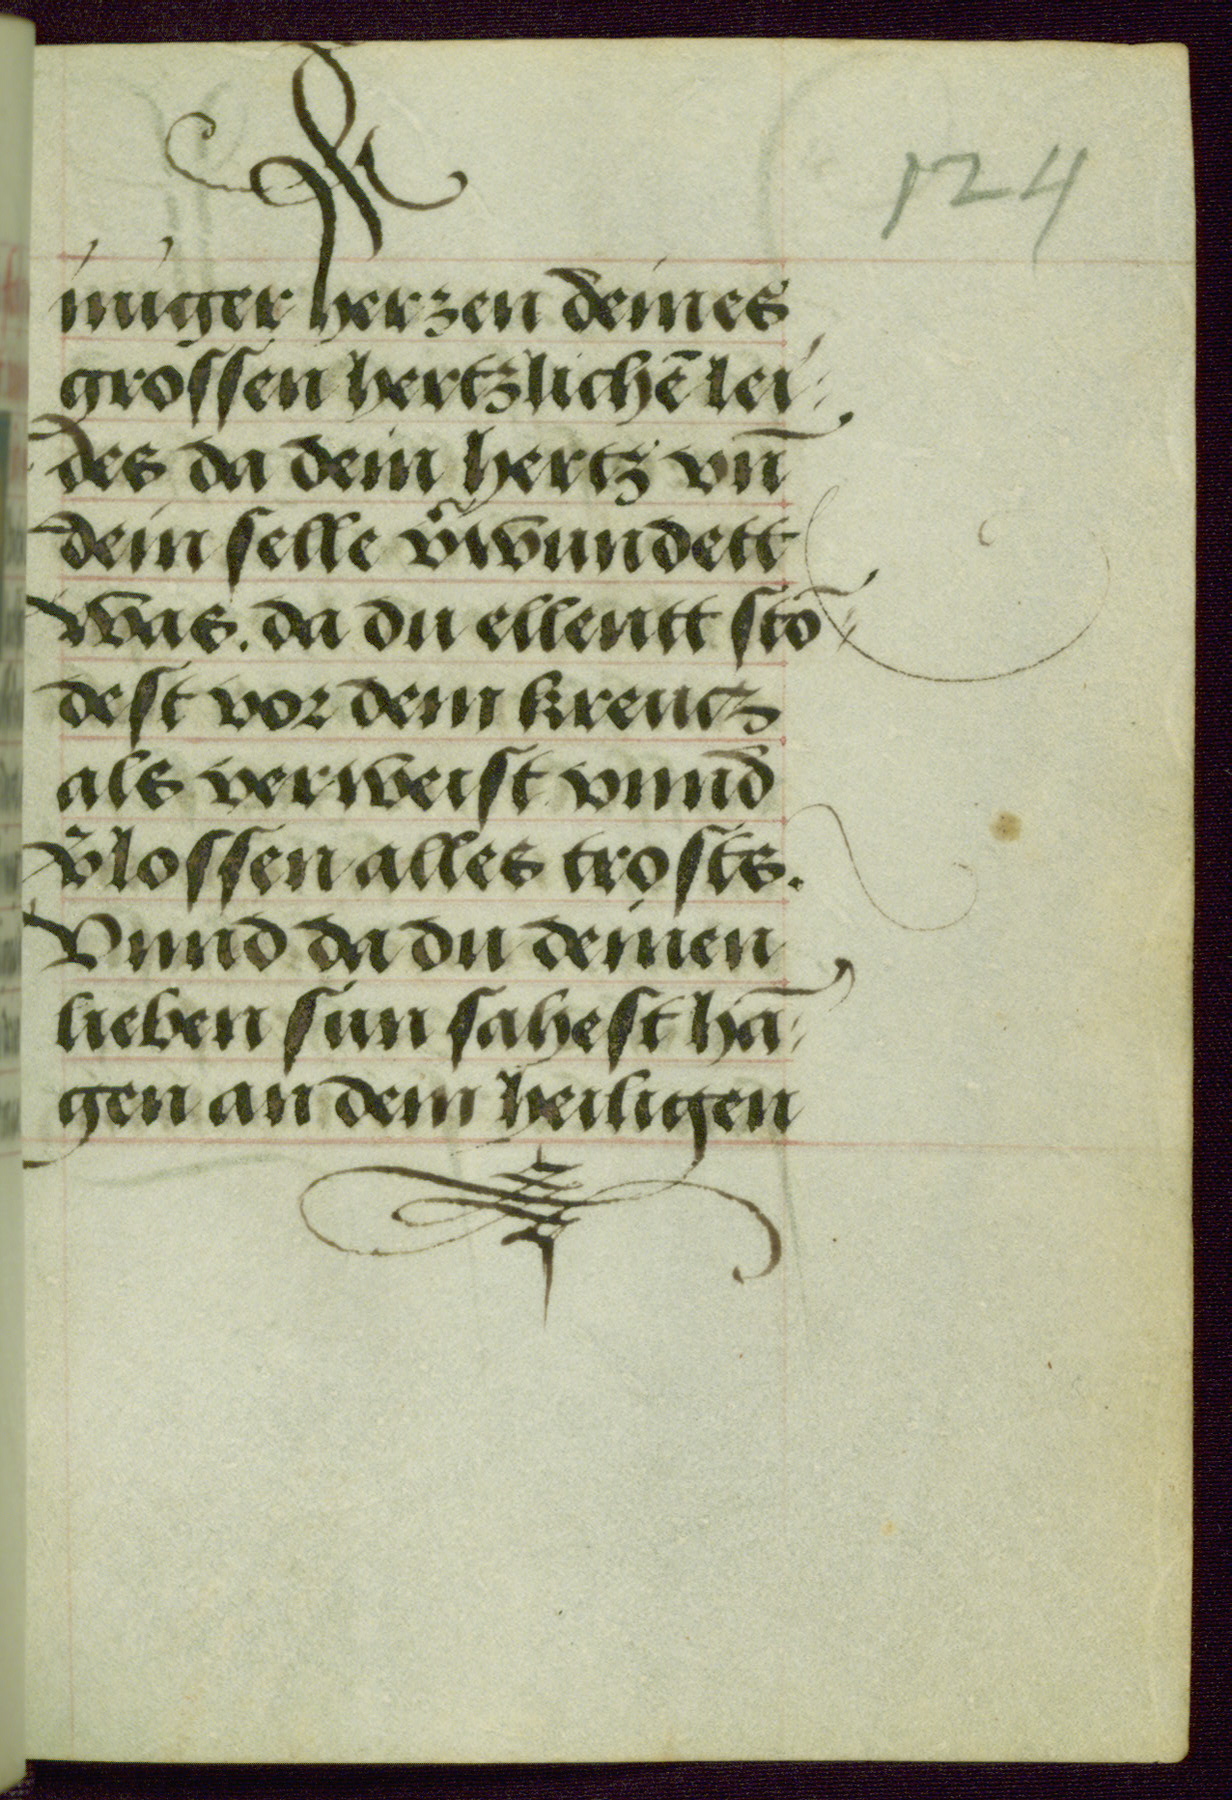 124
inniger herzen deines
grossen hertzlichē lei⸗
des da dein hertz vn̄
dein selle v̾wundett
was. da du ellentt sto⸗
dest vor dem kreutz
als verweist vnnd
v̾lossen alles trosts.
Vnnd da du deinen
lieben sun sahest hā⸗
gen an dem heiligen